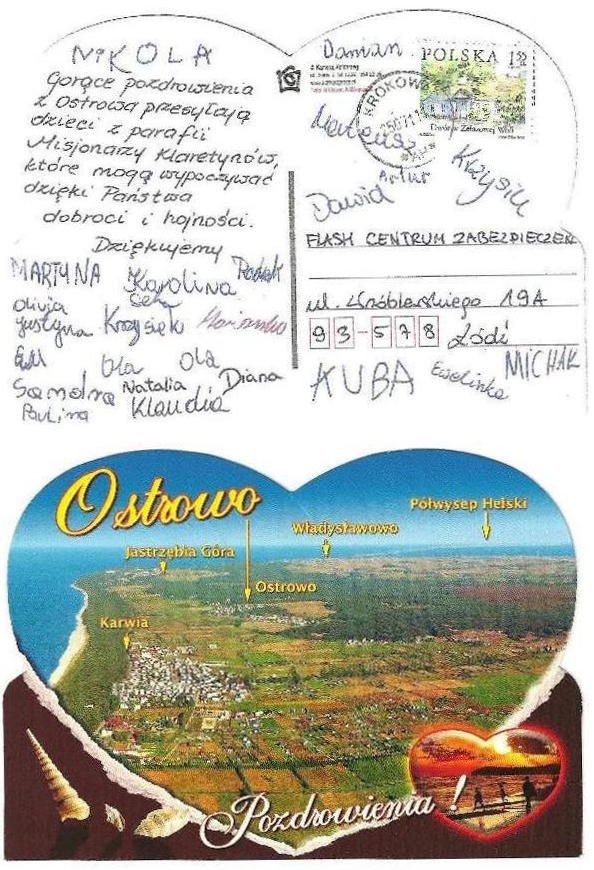 NIKOLA
Gorące pozdrowienia
z Ostrowa przesyłają
dzieci z parafii
Misjonarzy Klaretynów,
które mogą wypoczywać
dzięki Państwa
dobroci i hojności.
Dziękujemy
MARTYNA Karolina Radek
Olivia
Justyna Krzysiek
Ola Ola
Natalia Diana
Paulina Klaudia
Damian
POLSKA 1
Dworek w Żelazowej Woli
KROKOWA
Mateusz
Artur
Krzysiu
Dawid
FLASH CENTRUM ZABEZPIECZEŃ
ul. Wróblewskiego 19A
93-578 Łódź
KUBA Ewelinka MICHAŁ
Ostrowo
Półwysep Helski
Władysławowo
Jastrzębia Góra
Ostrowo
Karwia
Pozdrowienia !